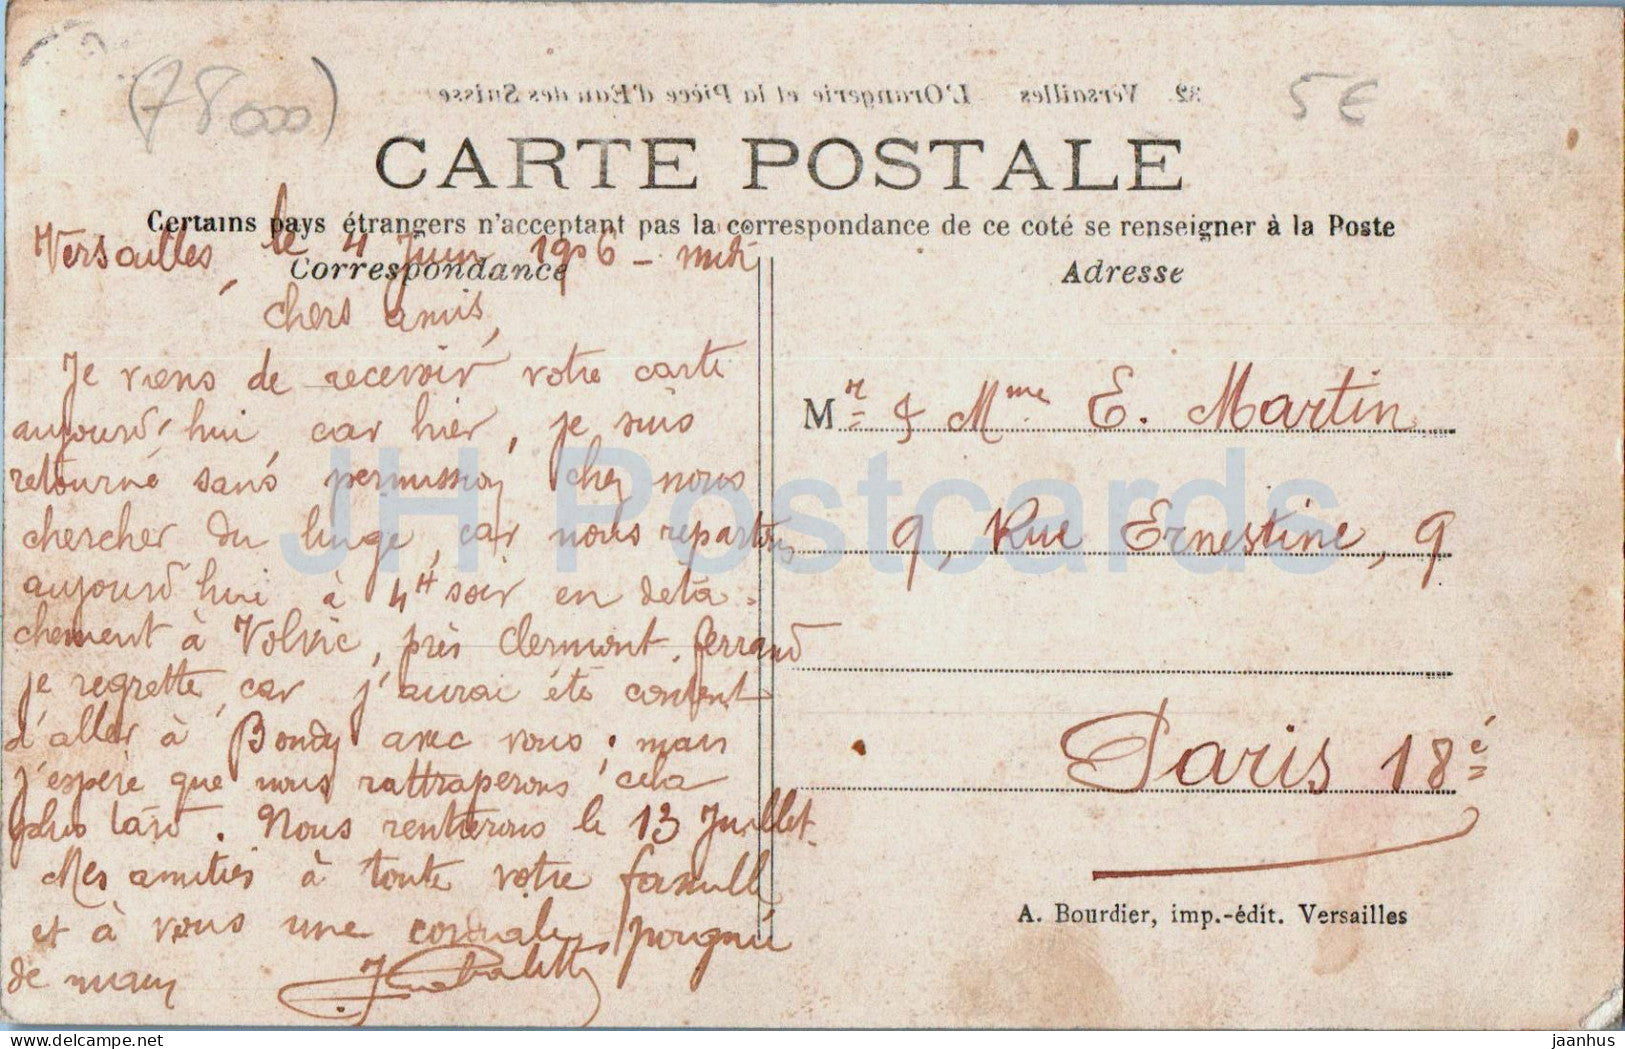 (78000)
5€
32. Versailles L'Orangerie et la Pièce d'Eau des Suisses
CARTE POSTALE
Certains pays étrangers n'acceptant pas la correspondance de ce coté se renseigner à la Poste
Correspondance
Adresse
Versailles, le 4 Juin 1906 - midi
chers amis,
Je viens de recevoir votre carte
aujourd'hui car hier, je suis
retourné sans permission chez nous
chercher du linge, car nous repartons
aujourd'hui à 4H soir en déta-
chement à Volvic, près Clermont-ferrand
je regrette, car j'aurai été content
d'aller à Bondy avec vous, mais
j'espère que nous rattraperons cela
plus tard. Nous rentrerons le 13 Juillet.
Mes amitiés à toute votre famille
et à vous une cordiale poignée
de main
Mr & Mme E. Martin
9, Rue Ernestine, 9
Paris 18é
A. Bourdier, imp.-édit. Versailles
JH Postcards
delcampe.net
jaanhus